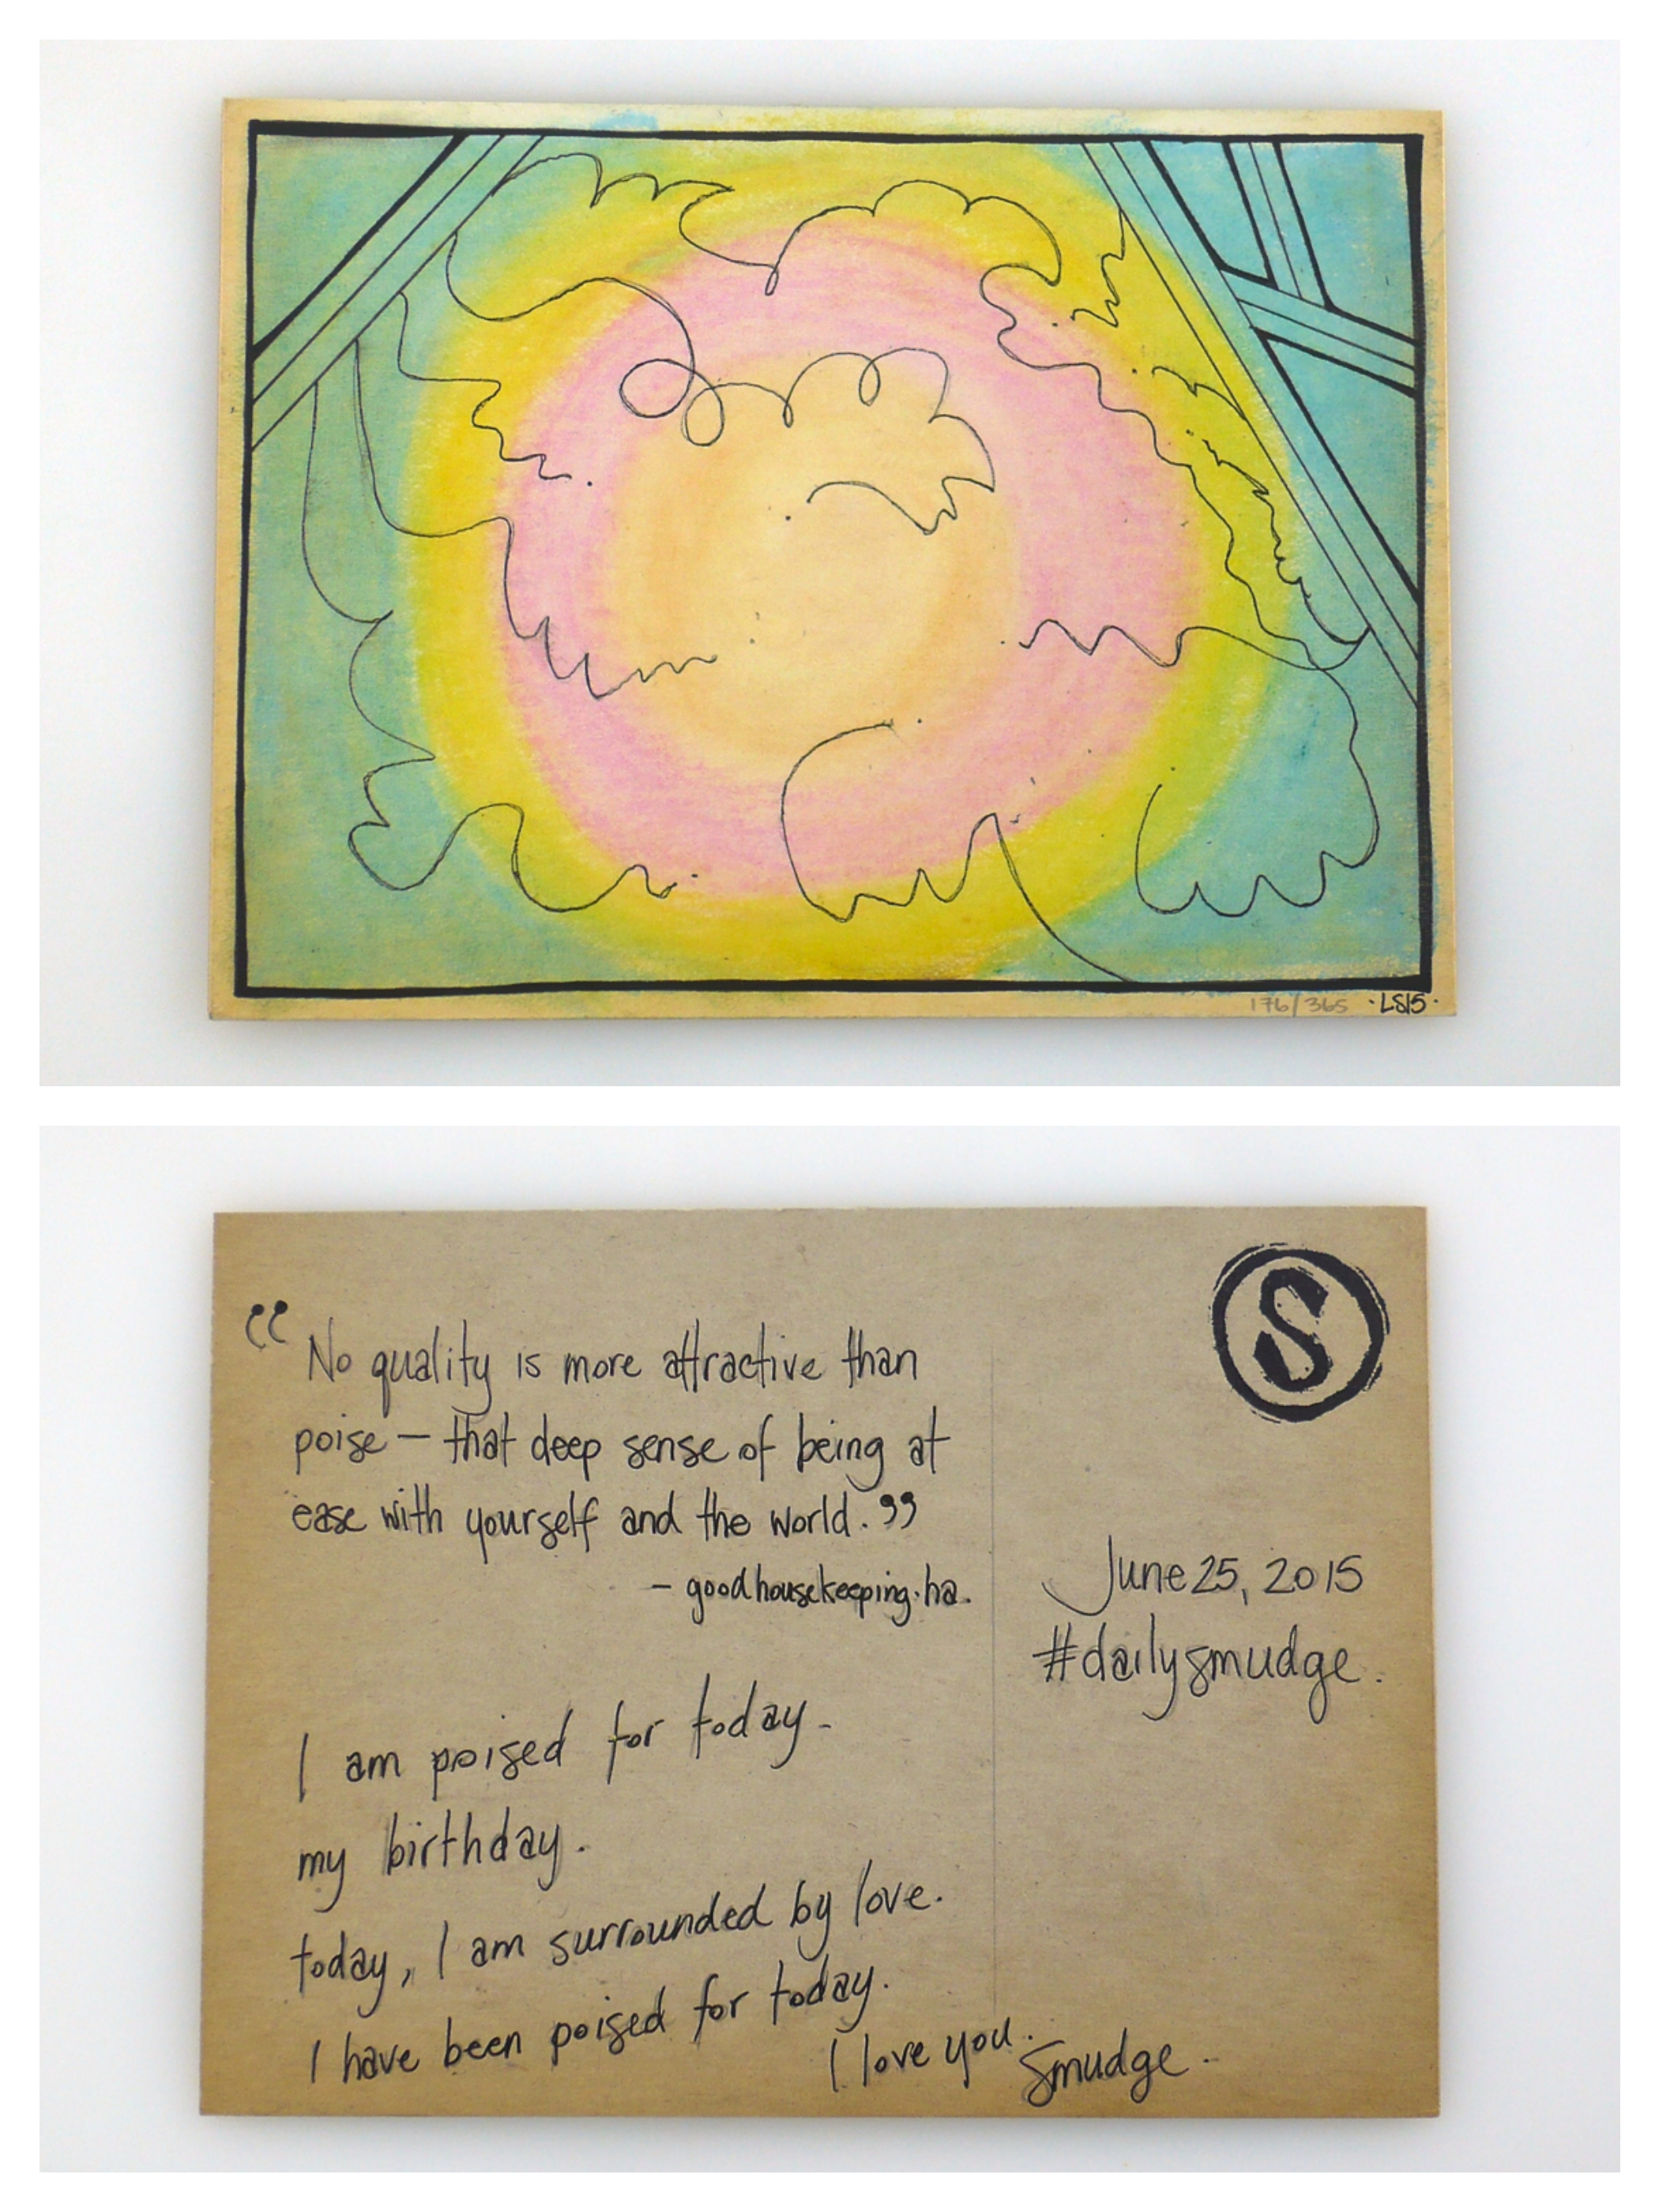 176/365 ·LS15·
S
“No quality is more attractive than
poise — that deep sense of being at
ease with yourself and the world.”
- goodhousekeeping.ha.
I am poised for today.
my birthday.
today, I am surrounded by love.
I have been poised for today.
I love you.
Smudge.
June 25, 2015
#dailysmudge.